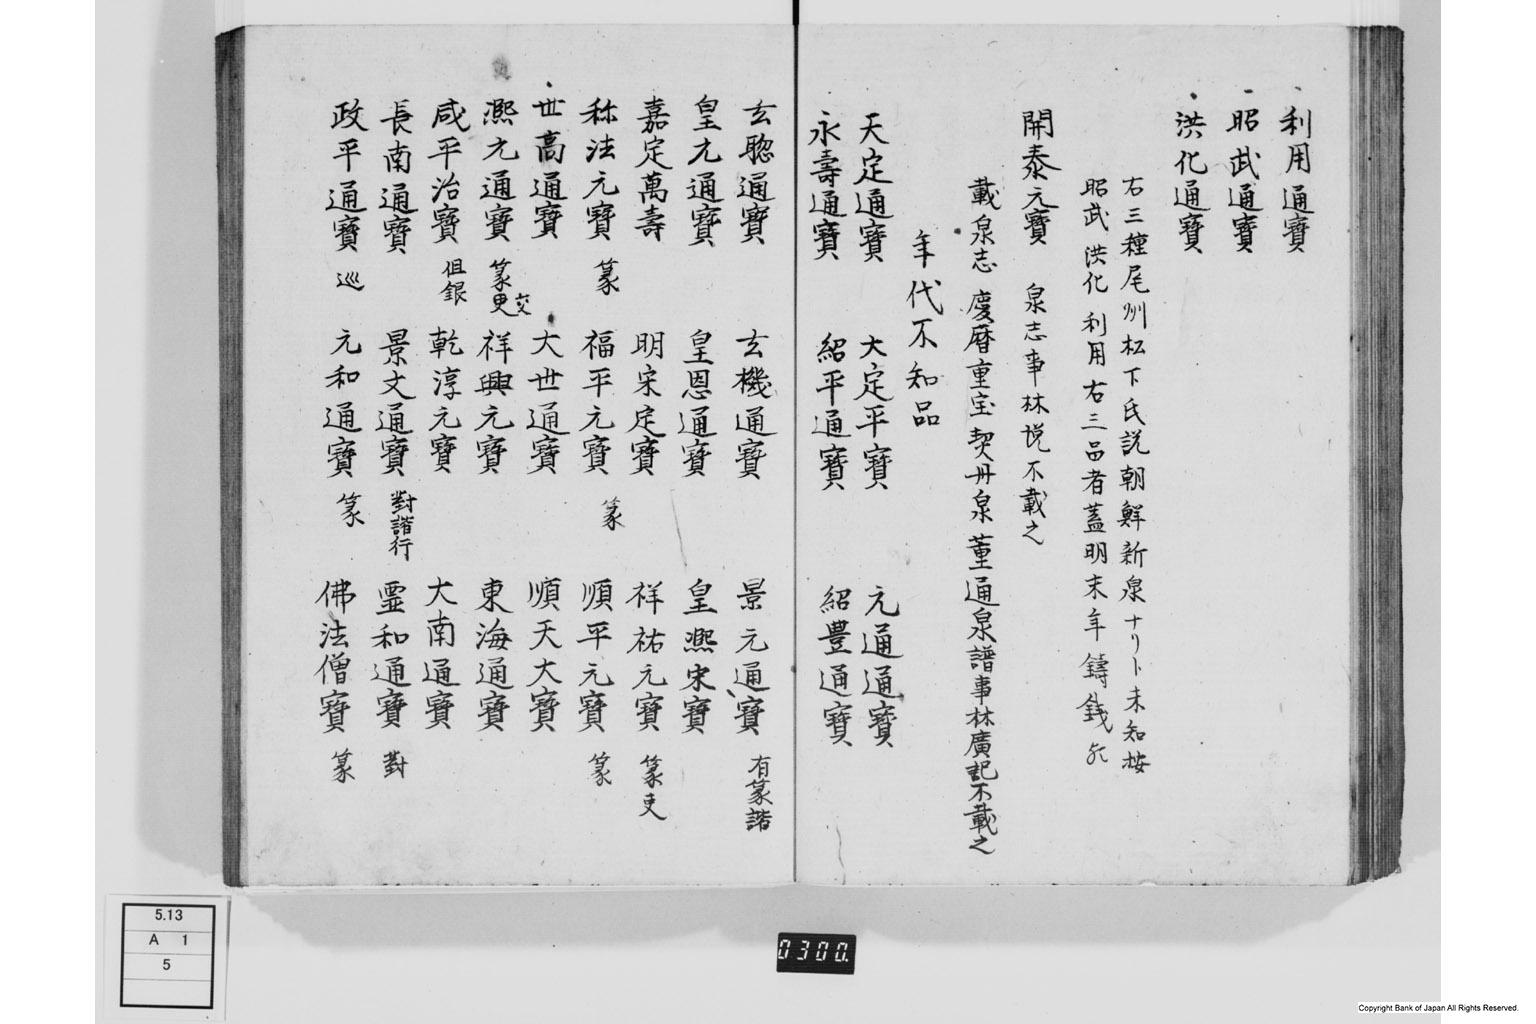 利用通寳
昭武通寳
洪化通寳
右三種尾州松下氏説朝鮮新泉ナリト未知按
昭武洪化利用右三品者蓋明末年鑄銭
開泰元寳 泉志事林悦不載之
載泉志慶暦重宝契丹泉董通泉譜事林廣記不載之
年代不知品
天定通寳 大定平寳 元通通寳
永壽通寳 紹平通寳 紹豊通寳
玄聰通寳 玄機通寳 景元通寳 有篆諧
皇元通寳 皇恩通寳 皇熙宋寳
嘉定萬壽 明宋定寳 祥祐元寳 篆吏
称法元寳 篆 福平元寳 篆 順平元寳 篆
世高通寳 大世通寳 順天大寳
熙元通寳 篆吏交 祥興元寳 東海通寳
咸平治寳 但銀 乾淳元寳 大南通寳
長南通寳 景文通寳 對諧行 霊和通寳 對
政平通寳 巡 元和通寳 篆 佛法僧寳 篆
5.13
A 1
5
0300.
Copyright Bank of Japan All Rights Reserved.